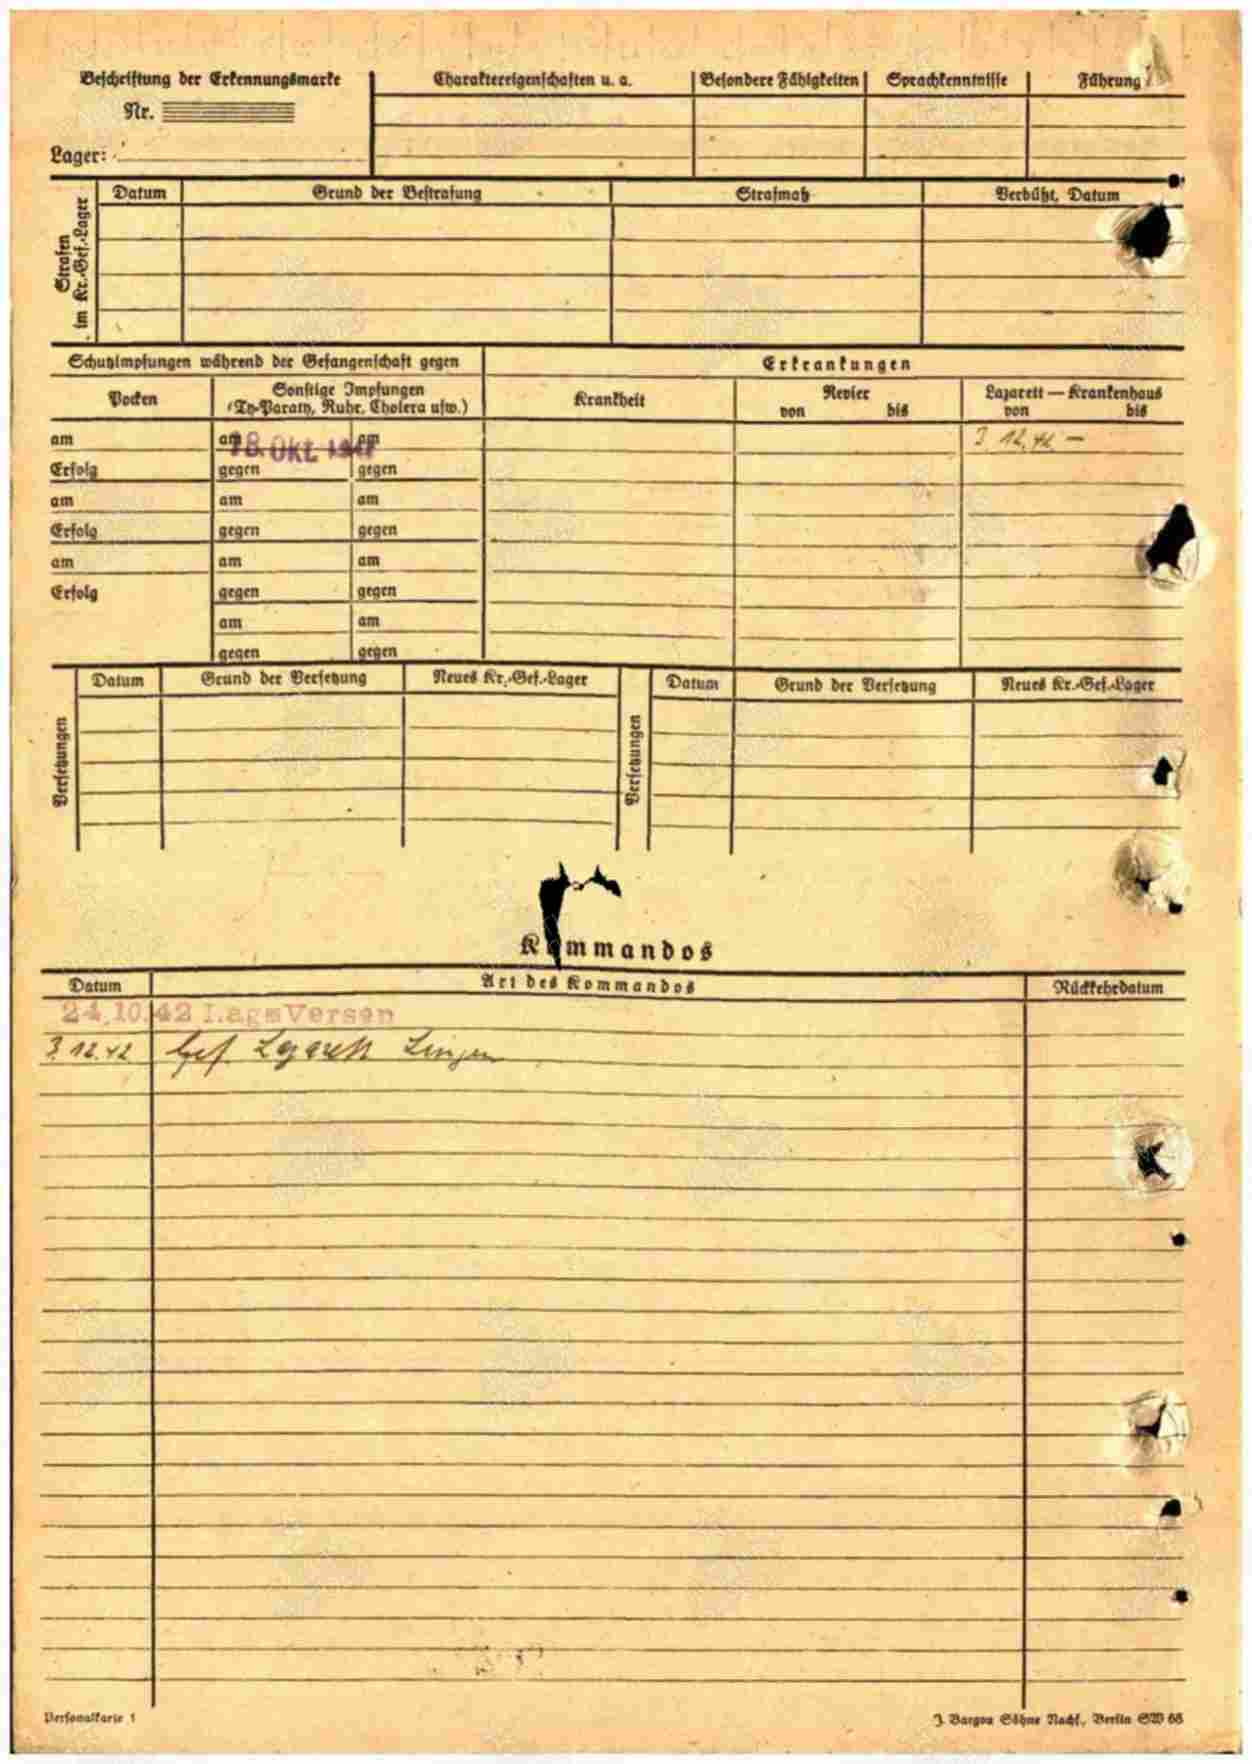 Beschriftung der Erkennungsmarke
Nr.
Lager:
Charaktereigenschaften u. a.
Besondere Fähigkeiten
Sprachkenntnisse
Führung
Strafen
im Kr.-Gef.-Lager
Datum
Grund der Bestrafung
Strafmaß
Verbüßt, Datum
Schutzimpfungen während der Gefangenschaft gegen
Erkrankungen
Pocken
Sonstige Impfungen
(Ty-Paraty, Ruhr, Cholera usw.)
Krankheit
Revier
von bis
Lazarett — Krankenhaus
von bis
am am am
18. Okt.
3.12.42 —
Erfolg gegen gegen
am am am
Erfolg gegen gegen
am am am
Erfolg gegen gegen
am am
gegen gegen
Versetzungen
Datum Grund der Versetzung Neues Kr.-Gef.-Lager
Versetzungen
Datum Grund der Versetzung Neues Kr.-Gef.-Lager
Kommandos
Datum Art des Kommandos Rückkehrdatum
24.10.42 Lag. Versen
3.12.42 Gef. Lazarett Lingen
Personalkarte 1
J. Bargou Söhne Nachf., Berlin SW 68